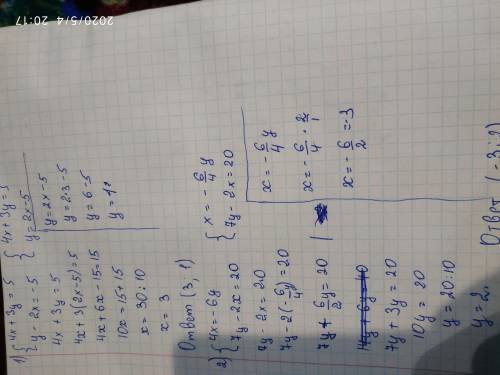 2020/5/4 20:17
1) {4x + 3y = 5
y - 2x = -5
{4x + 3y = 5
y = 2x - 5
4x + 3y = 5
4x + 3(2x - 5) = 5
4x + 6x - 15 = 15
10x = 15 + 15
x = 30 : 10
x = 3
y = 2x - 5
y = 2·3 - 5
y = 6 - 5
y = 1
Ответ (3; 1)
2) {4x = -6y
7y - 2x = 20
{x = -6/4 y
7y - 2x = 20
7y - 2x = 20
7y - 2(-6/4 y) = 20
7y + 6/2 y = 20
14y + 6y = 40
7y + 3y = 20
10y = 20
y = 20 : 10
y = 2.
x = -6/4 y
x = -6/4 · 2/1
x = -6/2 = -3
Ответ (-3; 2)